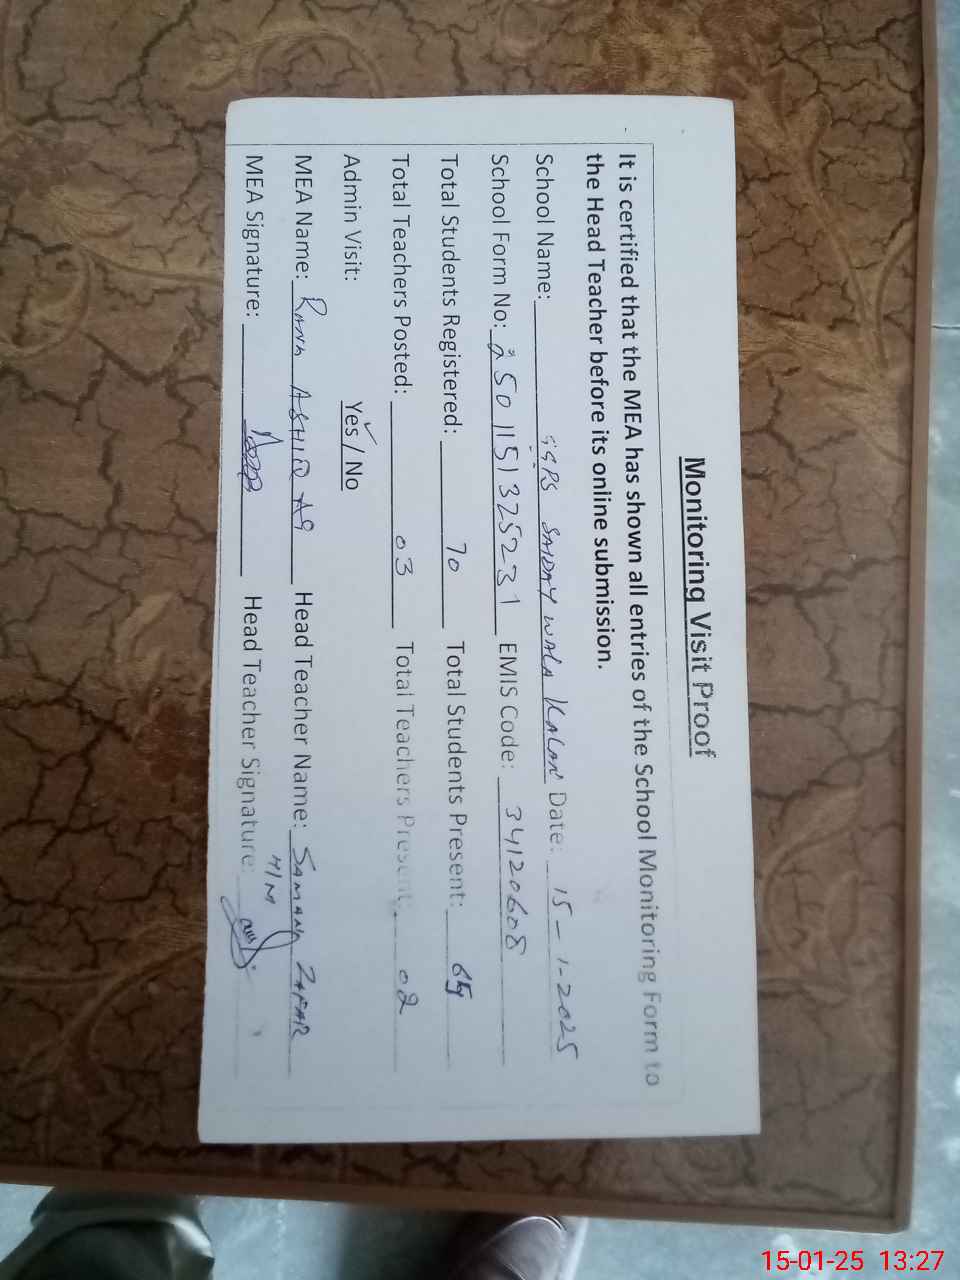 Monitoring Visit Proof
It is certified that the MEA has shown all entries of the School Monitoring Form to
the Head Teacher before its online submission.
School Name: GGPS SAIDAY WALA KALAN Date: 15-1-2025
School Form No: 2501151325231 EMIS Code: 34120608
Total Students Registered: 70 Total Students Present:
Total Teachers Posted: 03 Total Teachers Present: 02
Admin Visit: Yes / No
MEA Name: RANA ASHIQ Head Teacher Name: SAMANA ZAFAR
MEA Signature: Head Teacher Signature:
15-01-25 13:27